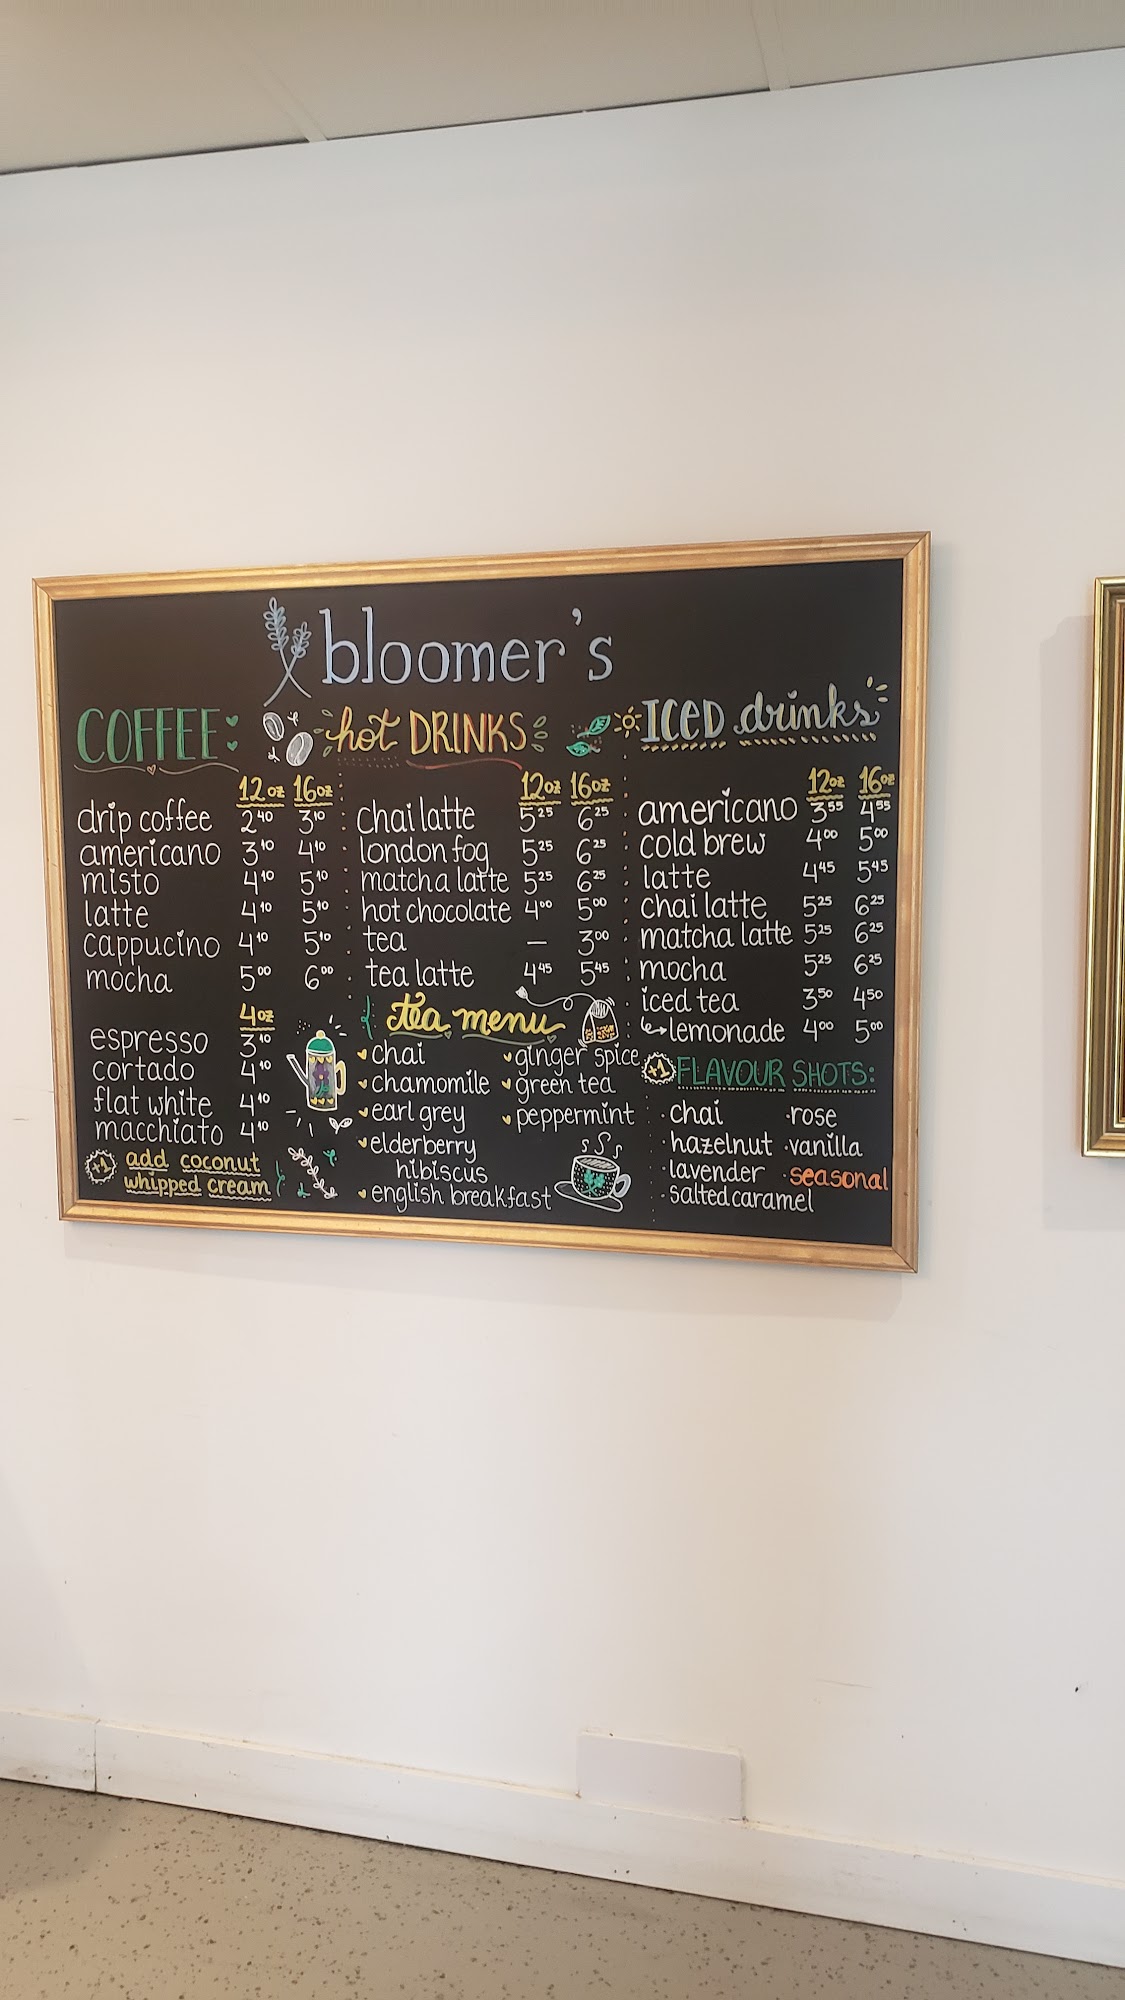 bloomer's
COFFEE:
12oz 16oz
drip coffee 2⁴⁰ 3¹⁰
americano 3¹⁰ 4¹⁰
misto 4¹⁰ 5¹⁰
latte 4¹⁰ 5¹⁰
cappucino 4¹⁰ 5¹⁰
mocha 5⁰⁰ 6⁰⁰
4oz
espresso 3¹⁰
cortado 4¹⁰
flat white 4¹⁰
macchiato 4¹⁰
+1 add coconut
whipped cream
hot DRINKS
12oz 16oz
chai latte 5²⁵ 6²⁵
london fog 5²⁵ 6²⁵
matcha latte 5²⁵ 6²⁵
hot chocolate 4⁰⁰ 5⁰⁰
tea — 3⁰⁰
tea latte 4⁴⁵ 5⁴⁵
tea menu
chai
chamomile
earl grey
elderberry
hibiscus
english breakfast
ginger spice
green tea
peppermint
ICED drinks
12oz 16oz
americano 3⁵⁵ 4⁵⁵
cold brew 4⁰⁰ 5⁰⁰
latte 4⁴⁵ 5⁴⁵
chai latte 5²⁵ 6²⁵
matcha latte 5²⁵ 6²⁵
mocha 5²⁵ 6²⁵
iced tea 3⁵⁰ 4⁵⁰
↳lemonade 4⁰⁰ 5⁰⁰
+1 FLAVOUR SHOTS:
· chai
· hazelnut
· lavender
· salted caramel
· rose
· vanilla
· seasonal